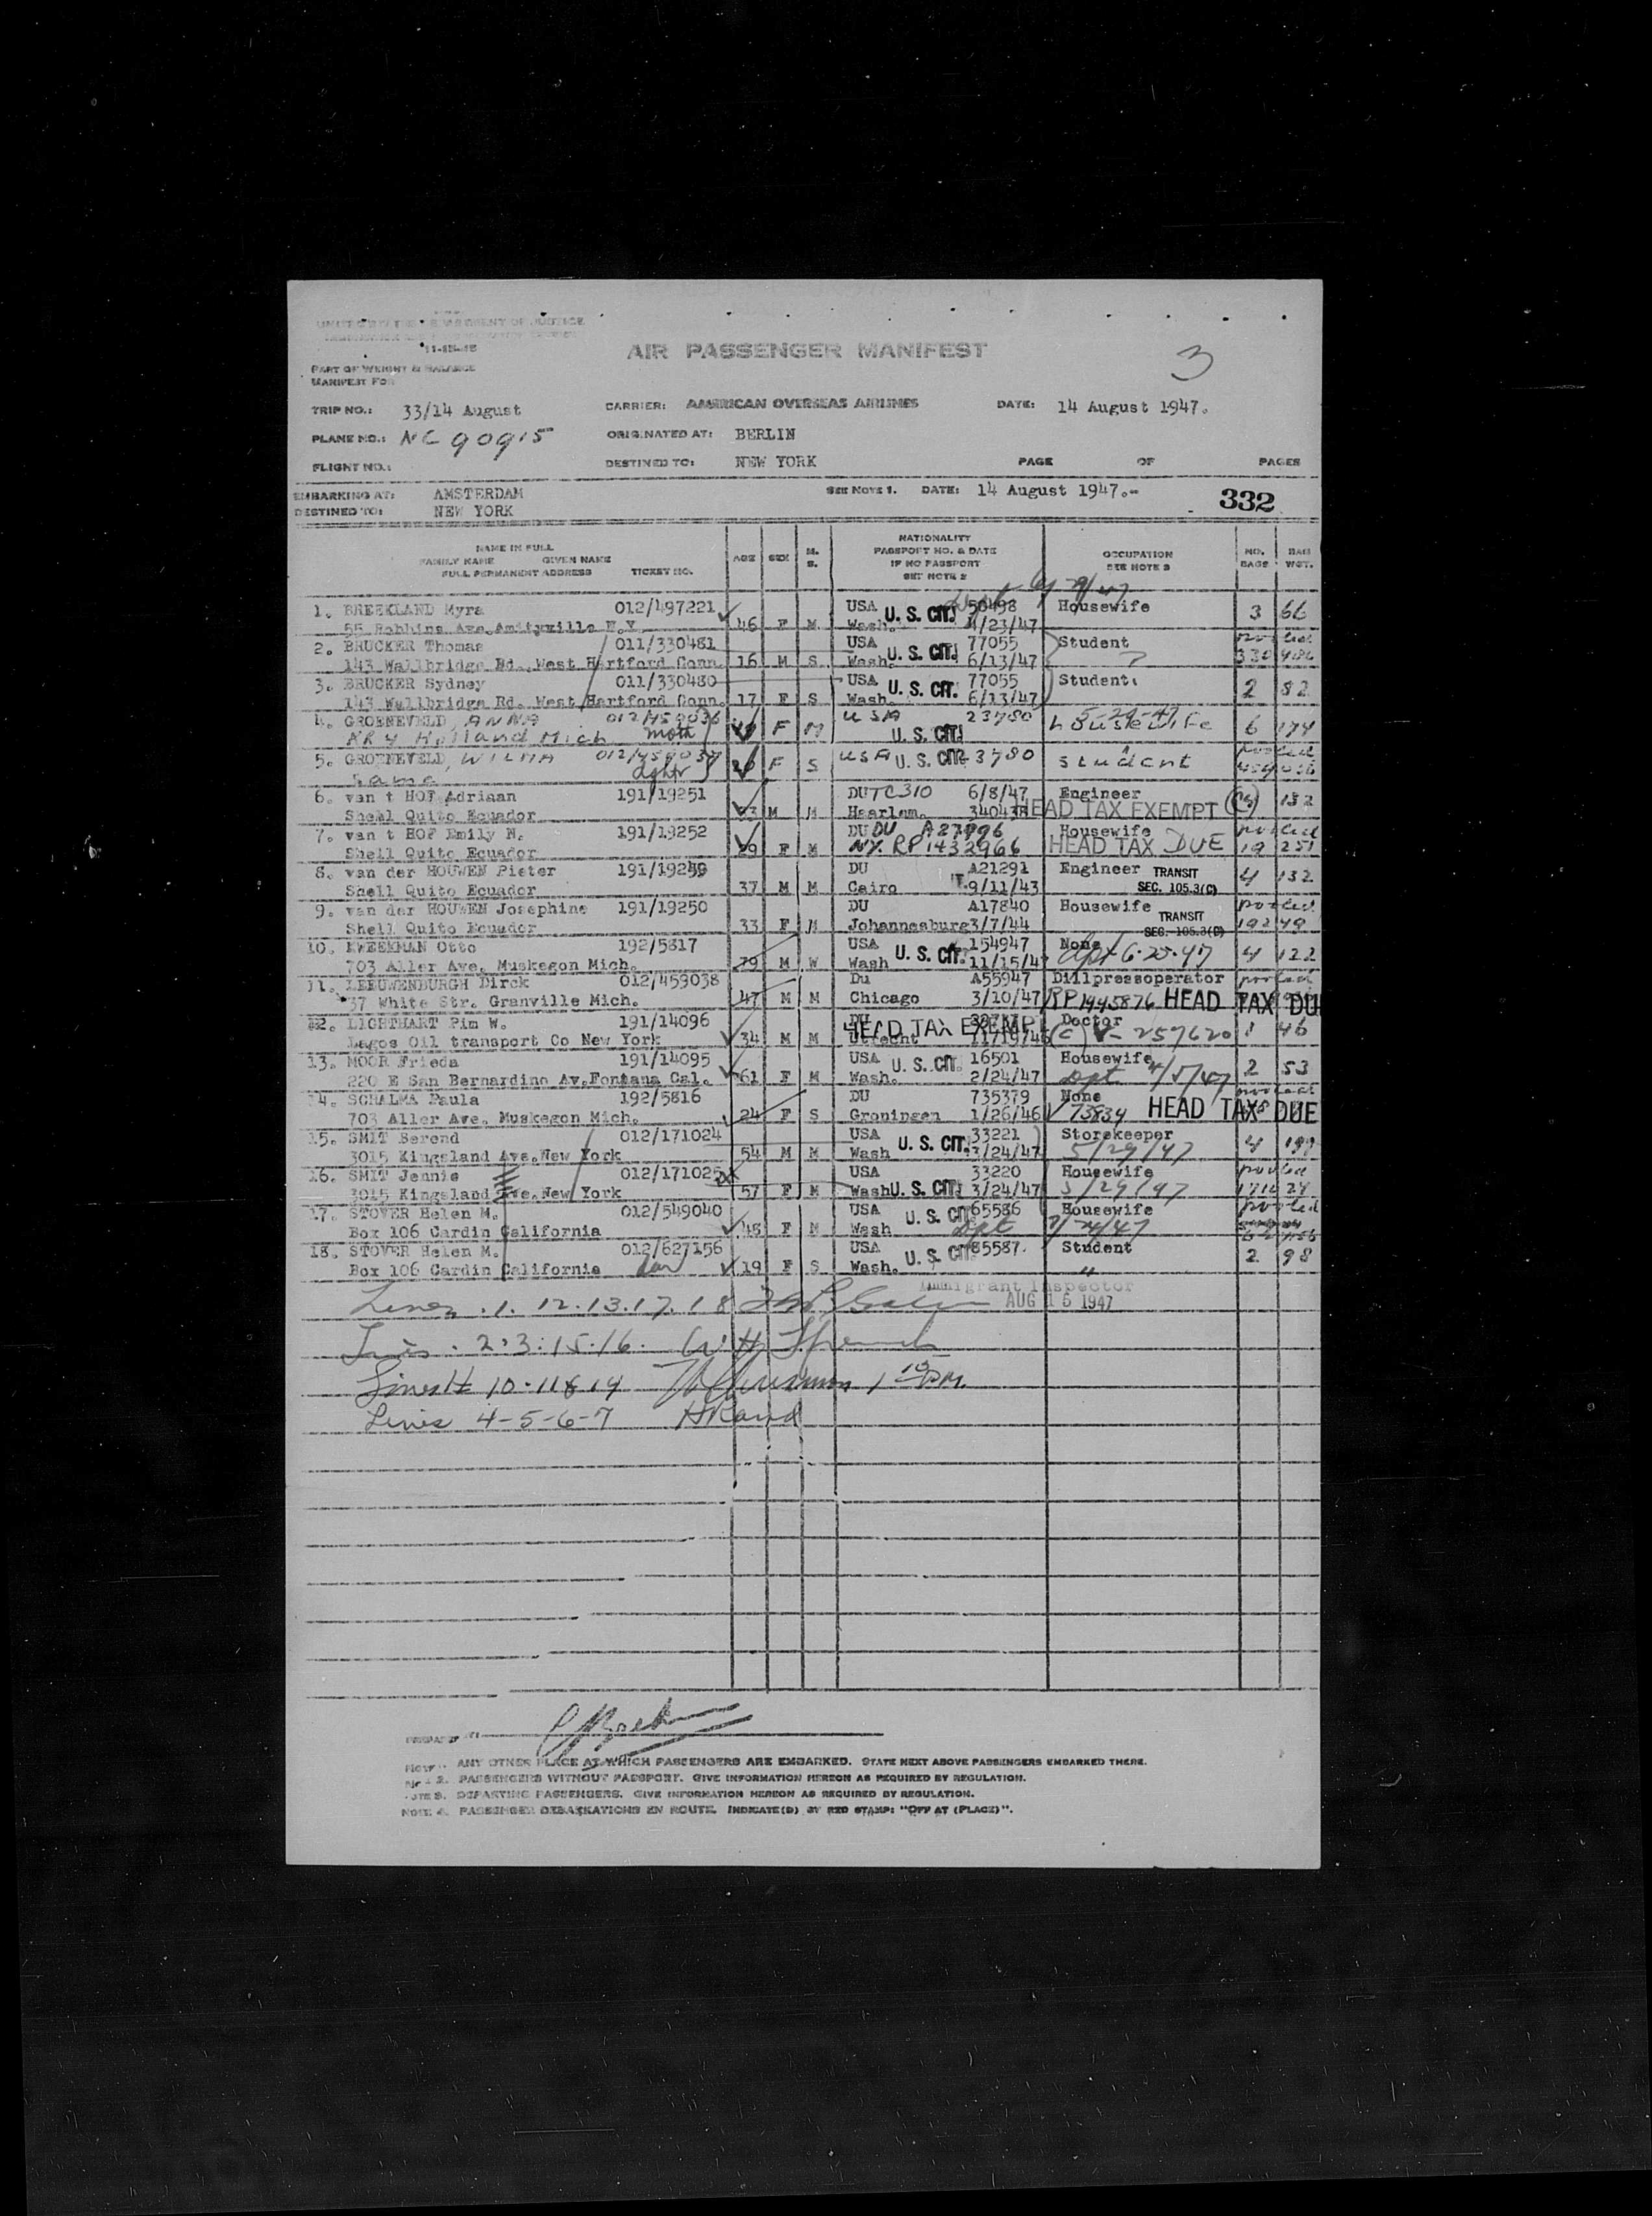 11-15-45
AIR PASSENGER MANIFEST
3
PART OF WEIGHT & BALANCE
MANIFEST FOR
TRIP NO.: 33/14 August CARRIER: AMERICAN OVERSEAS AIRLINES DATE: 14 August 1947.
PLANE NO.: NC 90915 ORIGINATED AT: BERLIN
FLIGHT NO.: DESTINED TO: NEW YORK PAGE OF PAGES
EMBARKING AT: AMSTERDAM SEE NOTE 1. DATE: 14 August 1947.-
DESTINED TO: NEW YORK 332
NAME IN FULL
FAMILY NAME GIVEN NAME
FULL PERMANENT ADDRESS TICKET NO. AGE SEX M. S. NATIONALITY PASSPORT NO. & DATE IF NO PASSPORT SEE NOTE 2 OCCUPATION SEE NOTE 3 NO. BAGS BAG WGT.
1. BREEKLAND Myra 012/497221 USA U. S. CIT. 50498 Housewife 3 66
55 Robbins Ave.Amityville N.Y. 46 F M Wash. 4/23/47
2. BRUCKER Thomas 011/330481 USA U. S. CIT. 77055 Student pooled
143 Wallbridge Rd. West Hartford Conn. 16 M S Wash. 6/13/47
3. BRUCKER Sydney 011/330480 USA U. S. CIT. 77055 Student 2 82
143 Wallbridge Rd. West Hartford Conn. 17 F S Wash. 6/13/47
4. GROENEVELD, ANNA 012/459036 USA 23780 5-29-47 Housewife 6 174
RR 4 Holland Mich moth F M U. S. CIT.
5. GROENEVELD, WILMA 012/459037 USA U. S. CIT. 23780 student pooled
Same dghtr F S
6. van t HOF Adriaan 191/19251 DU TC310 6/8/47 Engineer
Shell Quito Ecuador M M Haarlem. 340438 HEAD TAX EXEMPT (C) 132
7. van t HOF Emily N. 191/19252 DU DU A27996 Housewife pooled
Shell Quito Ecuador 29 F M NY. RP 1432966 HEAD TAX DUE 19 251
8. van der HOUWEN Pieter 191/19249 DU A21291 Engineer TRANSIT 4 132
Shell Quito Ecuador 37 M M Cairo 9/11/43 SEC. 105.3(C)
9. van der HOUWEN Josephine 191/19250 DU A17840 Housewife TRANSIT pooled
Shell Quito Ecuador 33 F M Johannesburg 3/7/44 SEC. 105.3(C) 192 49
10. KWEEKMAN Otto 192/5817 USA U. S. CIT. 154947 None 4 122
703 Aller Ave. Muskegon Mich. 79 M W Wash 11/15/47 dpt 6-25-47
11. LEEUWENBURGH Dirck 012/459038 Du A55947 Dillpressoperator pooled
37 White Str. Granville Mich. 47 M M Chicago 3/10/47 RP 1945876 HEAD TAX DUE
12. LIGHTHART Pim W. 191/14096 DU HEAD TAX EXEMPT Doctor
Lagos Oil transport Co New York 34 M M Utrecht 11/19/46 (C) V-257620 1 46
13. MOOR Frieda 191/14095 USA U. S. CIT. 16501 Housewife 2 53
220 E San Bernardino Av.Fontana Cal. 61 F M Wash. 2/24/47 dpt 4/5/47
14. SCHALMA Paula 192/5816 DU 735379 None pooled
703 Aller Ave. Muskegon Mich. 24 F S Groningen 1/26/46 V 73834 HEAD TAX DUE
15. SMIT Berend 012/171024 USA U. S. CIT. 33221 Storekeeper 4
3015 Kingsland Ave.New York 54 M M Wash 3/24/47 5/29/47
16. SMIT Jennie 012/171025 USA 33220 Housewife pooled
3015 Kingsland Ave.New York 57 F M Wash U. S. CIT. 3/24/47 5/29/47
17. STOVER Helen M. 012/549040 USA U. S. CIT. 65586 Housewife pooled
Box 106 Cardin California 48 F M Wash dpt 7/24/47
18. STOVER Helen M. 012/627156 USA U. S. CIT. 85587. Student 2 98
Box 106 Cardin California dau 19 F S Wash. "
Immigrant Inspector
Lines .1. 12.13.17.18 AUG 15 1947
Lines . 2:3:15.16.
Lines 10-11&14
Lines 4-5-6-7 HRand
PREPARED BY:
ANY OTHER PLACE AT WHICH PASSENGERS ARE EMBARKED. STATE NEXT ABOVE PASSENGERS EMBARKED THERE.
PASSENGERS WITHOUT PASSPORT. GIVE INFORMATION HEREON AS REQUIRED BY REGULATION.
DEPARTING PASSENGERS. GIVE INFORMATION HEREON AS REQUIRED BY REGULATION.
NOTE 4. PASSENGER DEBARKATIONS EN ROUTE. INDICATE(D) BY RED STAMP: "OFF AT (PLACE)".